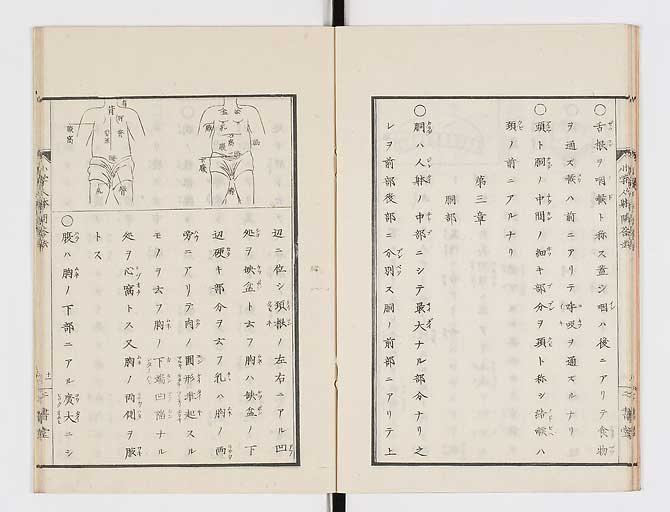 ○舌根ヲ咽喉ト称ス蓋シ咽ハ後ニアリテ食物
ヲ通ズ喉ハ前ニアリテ呼吸ヲ通ズルナリ
○頭ト胴ノ中間ノ細キ部分ヲ頸ト称シ結喉ハ
頸ノ前ニアルナリ
第三章
胴部
○胴ハ人躰ノ中部ニシテ最大ナル部分ナリ之
レヲ前部後部ニ分別ス胴ノ前部ニアリテ上
辺ニ位シ頸根ノ左右ニアル凹
処ヲ缺盆ト云フ胸ハ缺盆ノ下
辺硬キ部分ヲ云フ乳ハ胸ノ両
旁ニアリテ肉ノ圓形凖起スル
モノヲ云フ胸ノ下端凹陥ナル
処ヲ心窩トス又胸ノ両側ヲ腋
トス
○腹ハ胸ノ下部ニアル廣大ニシ